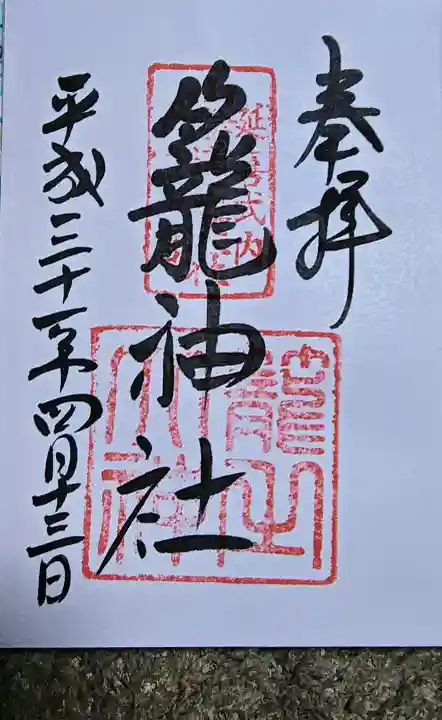 奉拝
籠神社
平成三十一年四月十三日
延喜式内